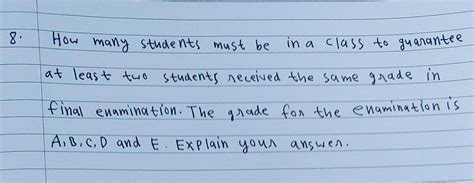 8. How many students must be in a class to guarantee
at least two students received the same grade in
final enamination. The grade for the enamination is
A, B, C, D and E. Explain your answer.